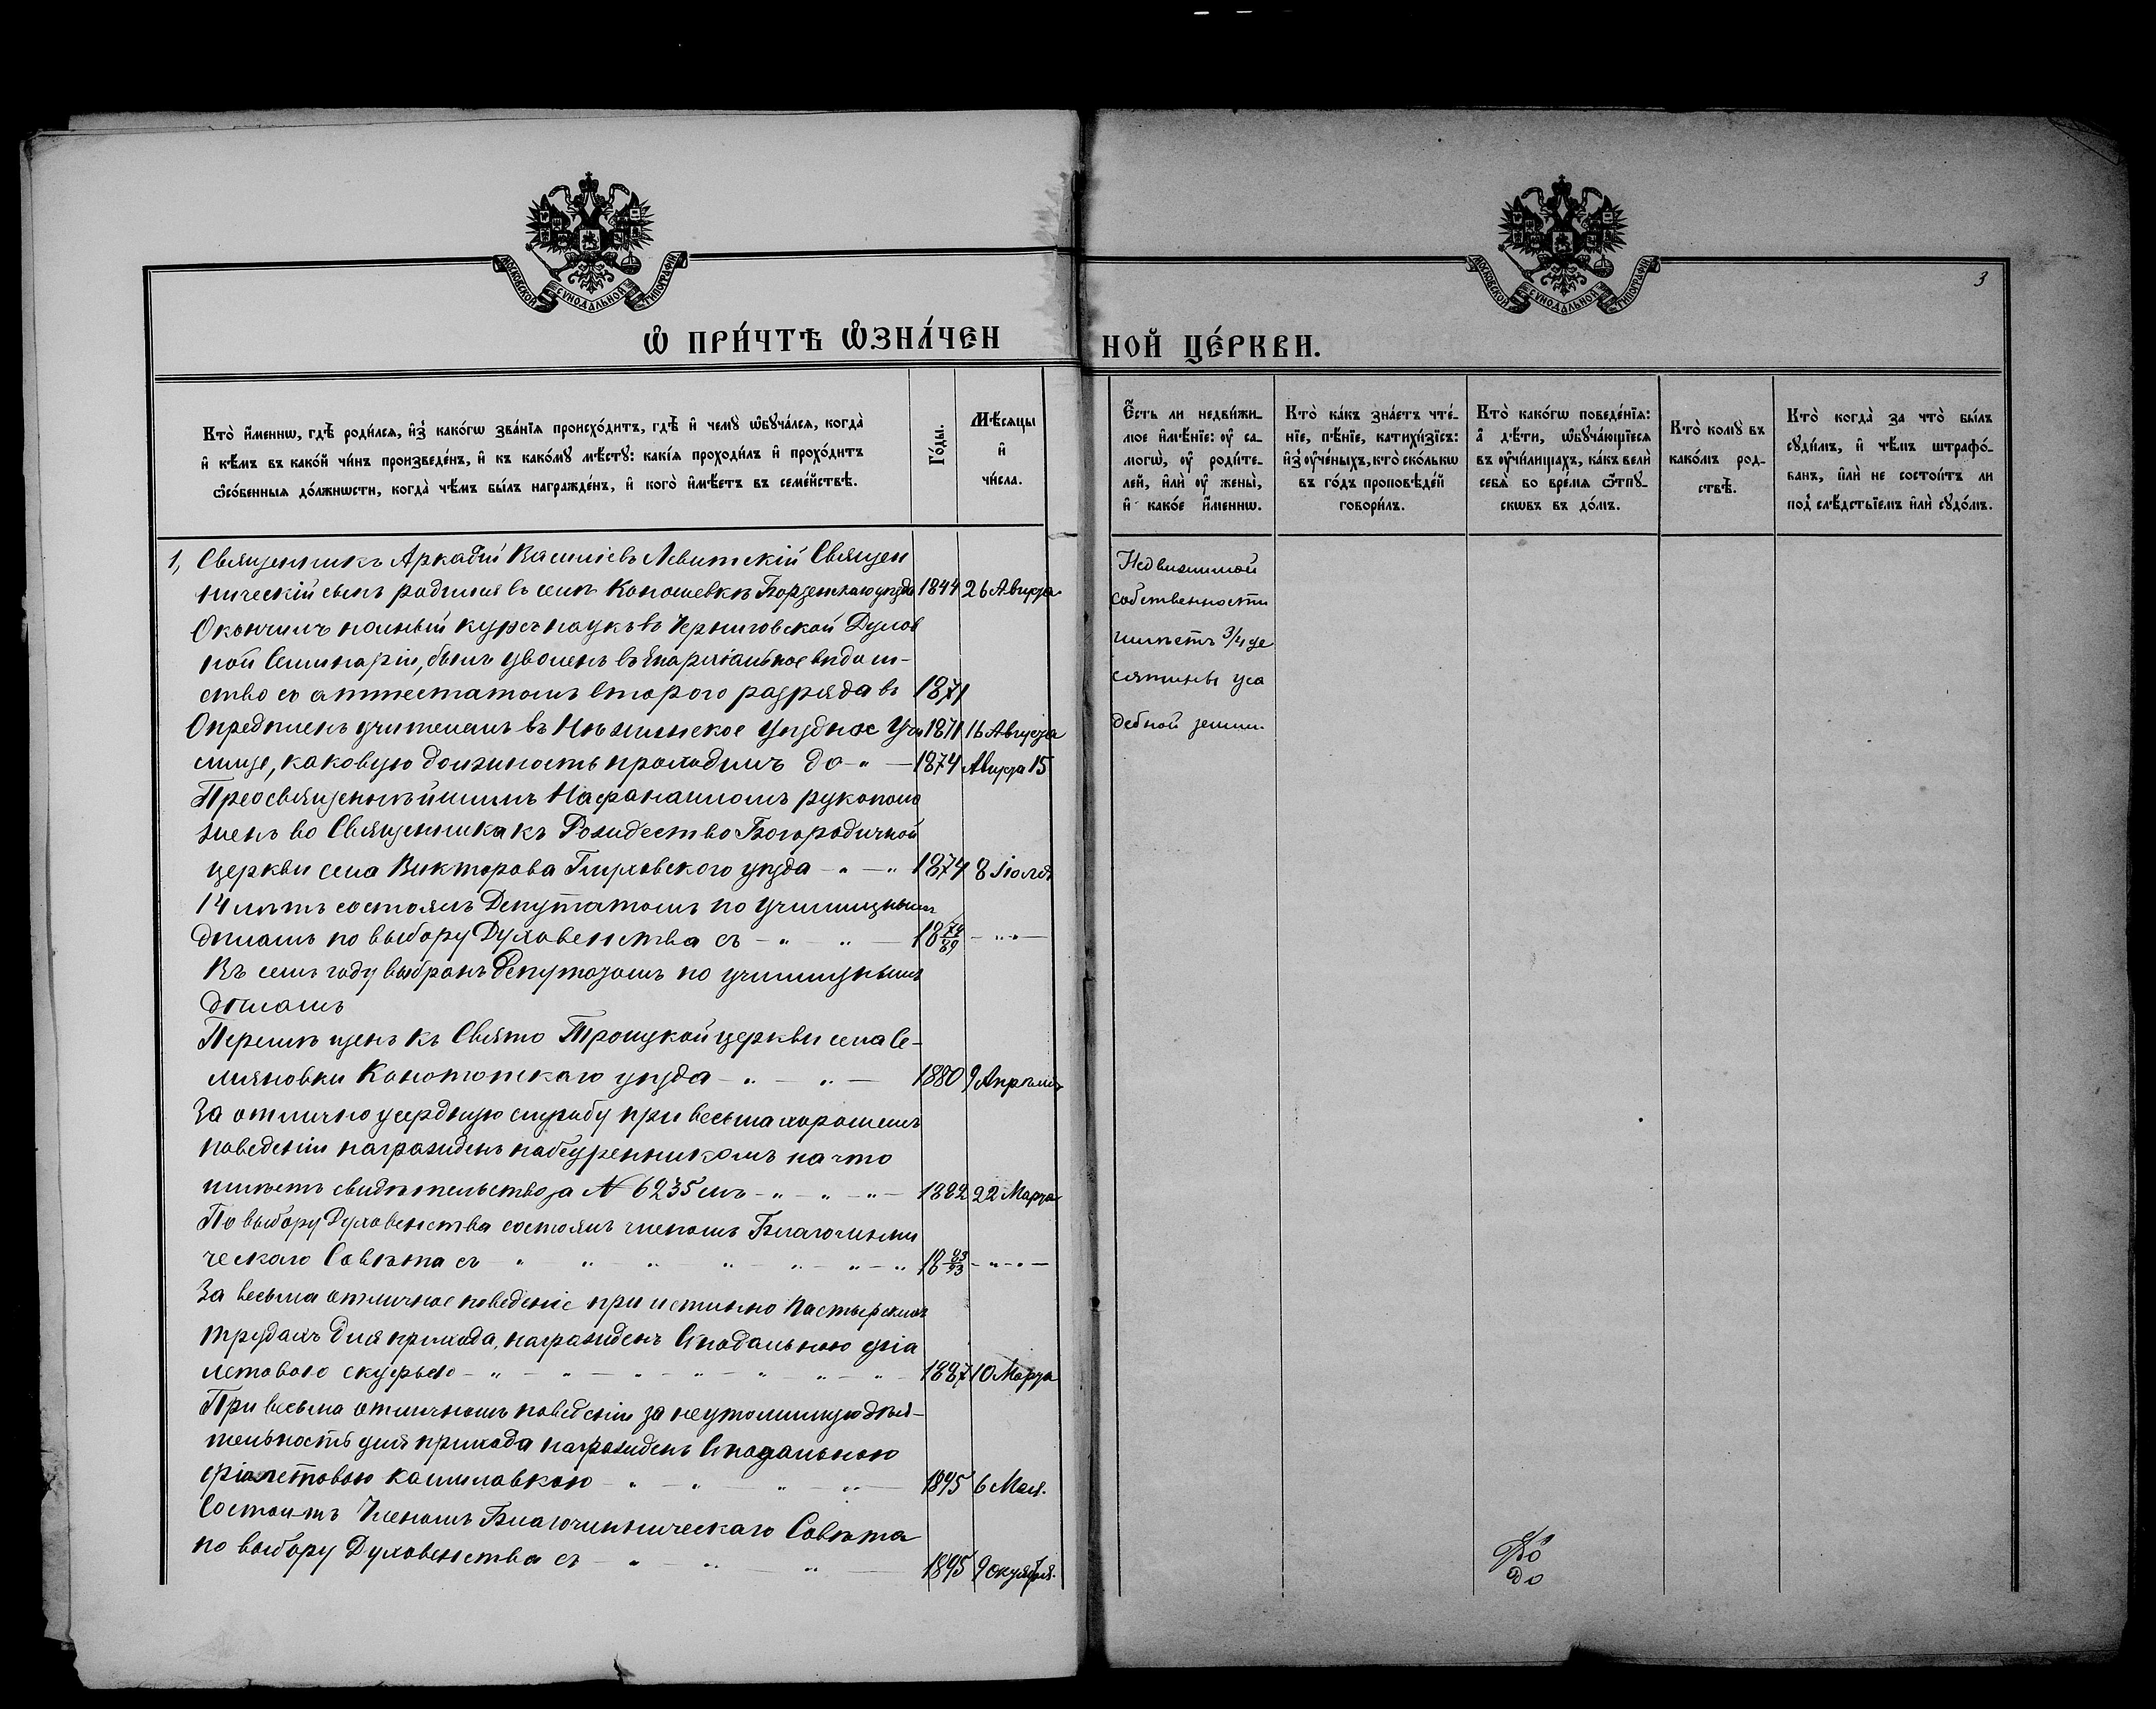 МОСКОВСКОЙ СУНОДАЛЬНОЙ ТИПОГРАФІИ
МОСКОВСКОЙ СУНОДАЛЬНОЙ ТИПОГРАФІИ
3
Ѽ ПРИ́ЧТѢ Ѽзна́чен
ной це́ркви.
Кто̀ и҆́меннѡ, гдѣ̀ роди́лся, и҆з̾ како́гѡ зва́нїя происхо́дитъ, гдѣ̀ и҆ чемꙋ̀ ѡ҆бꙋча́лся, когда̀
и҆ кѣ́мъ въ како́й чи́нъ произведе́нъ, и҆ къ како́мꙋ мѣ́стꙋ: какі́я проходи́лъ и҆ прохо́дитъ
ѡ҆со́бенныя до́лжнѡсти, когда̀ чѣ́мъ бы́лъ награжде́нъ, и҆ кого̀ и҆мѣ́етъ въ семе́йствѣ.
Го́ды.
Мѣ́сяцы
и҆
чи́сла.
Є҆́сть ли недви́жи-
мое и҆мѣ́нїе: ᲂу҆ са-
могѡ̀, ᲂу҆ роди́те-
лей, и҆лѝ ᲂу҆ жены̀,
и҆ како́е и҆́меннѡ.
Кто̀ ка́къ зна́етъ чте́-
нїе, пѣ́нїе, катихи́зїсъ:
и҆з̾ ᲂу҆че́ныхъ, кто̀ ско́лькѡ
въ го́дъ проповѣ́дей
говори́лъ.
Кто̀ како́гѡ поведе́нїя:
а҆ дѣ́ти, ѡ҆бꙋча́ющїеся
въ ᲂу҆чи́лищахъ, ка́къ велѝ
себѧ̀ во вре́мя ѿпꙋ-
сквъ въ до́мъ.
Кто̀ комꙋ̀ въ
како́мъ род-
ствѣ̀.
Кто̀ когда̀ за что̀ бы́лъ
сꙋди́мъ, и҆ чѣ́мъ штрафо́-
ванъ, и҆лѝ не состои́тъ ли
под̾ слѣ́дствїемъ и҆лѝ сꙋдо́мъ.
1, Священникъ Аркадій Василіевъ Левитскій Священ
ническій сынъ родился въ селѣ Коношевкѣ Борзенскаго уѣзда 1844 26 Августа
Окончилъ полный курсъ наукъ въ Черниговской Духов
ной Семинаріи, былъ уволенъ въ Епархіальное вѣдом-
ство съ аттестатомъ второго разряда въ 1871
Опредѣленъ учителемъ въ Нѣжинское Уѣздное Учи 1871 16 Августа
лище, каковую должность проходилъ до 1874 Августа 15
Преосвященнѣйшимъ Нафанаиломъ рукопол
женъ во Священника къ Рождество Богородичной
церкви села Викторова Глуховского уѣзда 1874 8 Іюля
14 лѣтъ состоялъ Депутатомъ по училищнымъ
дѣламъ по выбору Духовенства съ 18 74/89
Въ семъ году выбранъ Депутатомъ по училищнымъ
дѣламъ
Перемѣщенъ къ Свято Троицкой церкви села Се-
мяновки Конотопскаго уѣзда 1880 9 Апрѣля
За отлично усердную службу при весьма хорошемъ
поведеніи награжденъ набедренникомъ на что
имѣетъ свидѣтельство за N 6235мъ 1882 22 Марта
По выбору Духовенства состоялъ членомъ Благочинни
ческаго Совѣта съ 18 83/93
За весьма отличное поведеніе при истинно Пастырскихъ
трудахъ для прихода, награжденъ Синодальною фіа
летовою скуфьею 1887 10 Марта
При весьма отличномъ поведеніи за неутомимую дѣя-
тельность для прихода награжденъ Синодальною
фіолетовою камилавкою 1895 6 Мая.
Состоитъ Членомъ Благочинническаго Совѣта
по выбору Духовенства съ 1895 9 октября.
Недвижимой
собственности
имѣетъ 3/4 де
сятины уса
дебной земли.